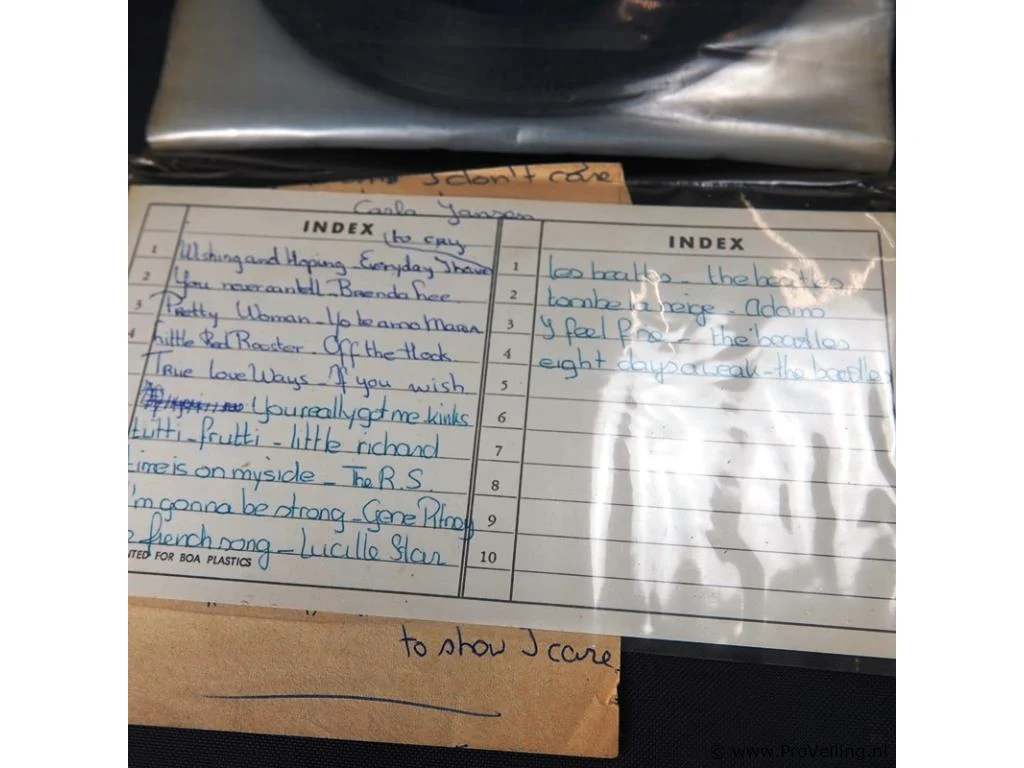 I don't care
Carla Jansen
INDEX
(to cry
1 Wishing and Hoping - Everyday I have
2 You never can tell - Brenda Lee
3 Pretty Woman - Yo te amo Maria
4 Little Red Rooster - Off the Hook
True love Ways - If you wish
You really got me kinks
tutti-frutti - little richard
time is on my side - The R.S
I'm gonna be strong - Gene Pitney
e french song - Lucille Star
NTED FOR BOA PLASTICS
INDEX
1 les beatles - the beatles
2 tombe la neige - Adamo
3 I feel fine - the beatles
4 eight days a weak - the beatles
5
6
7
8
9
10
to show I care
© www.ProVeiling.nl